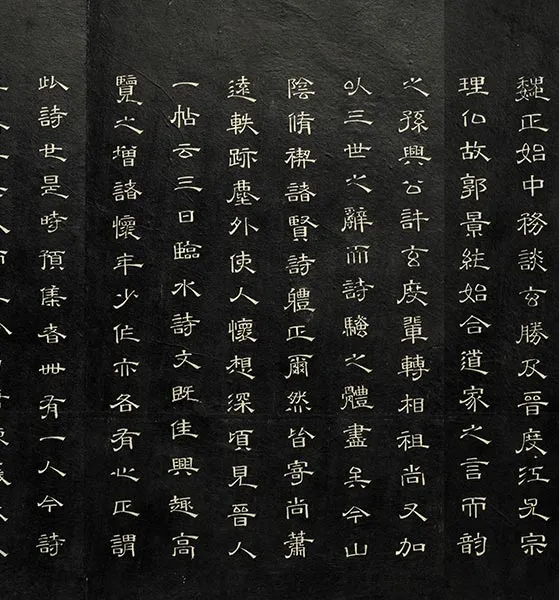 魏正始中務談玄勝及晉度江尤宗
理化故郭景純始合道家之言而韵
之孫興公許玄度輩轉相祖尚又加
以三世之辭而詩騷之體盡矣今山
陰脩禊諸賢詩體正爾然皆寄尚蕭
遠軼跡塵外使人懷想深頃見晉人
一帖云三日臨水詩文既佳興趣高
覽之增諸懷年少作亦各有心正謂
此詩也是時預集者卌有一人今詩